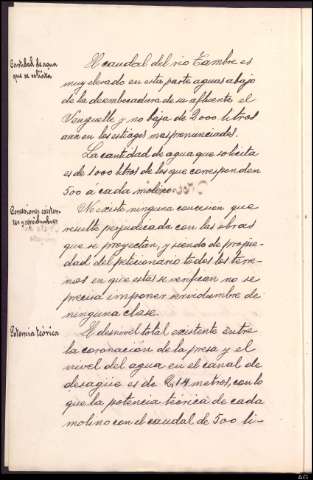 Cantidad de agua
que se solicita
El caudal del rio Tambre es
muy elevado en esta parte aguas abajo
de la desembocadura de su afluente el
y no baja de 2000 litros
aun en los estiages mas pronunciados.
La cantidad de agua que solicita
es de 1000 litros de los que corresponden
500 a cada molino.
Concesiones existen-
tes y servidumbres
No existe ninguna concesion que
resulte perjudicada con las obras
que se proyectan, y siendo de propie-
dad del peticionario todos los terre-
nos en que estas se verifican no se
precisa imponer servidumbre de
ninguna clase.
Potencia teórica
El desnivel total existente entre
la coronación de la presa y el
nivel del agua en el canal de
desagüe es de metros, con lo
que la potencia teórica de cada
molino con el caudal de 500 li-